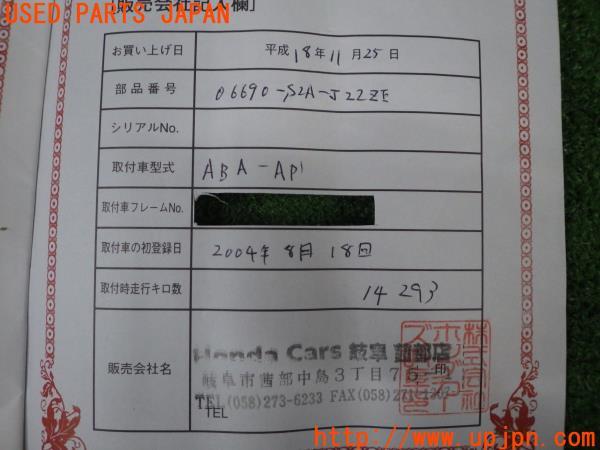 USED PARTS JAPAN
「販売会社記入欄」
お買い上げ日 平成 18年 11月 25日
部品番号 06690-S2A-J22ZE
シリアルNo.
取付車型式 ABA-AP1
取付車フレームNo.
取付車の初登録日 2004年 8月 18日
取付時走行キロ数 14293
販売会社名
Honda Cars 岐阜 茜部店
岐阜市茜部中島3丁目75-1
TEL(058)273-6233 FAX(058)271-
TEL
印
http://www.upjpn.com